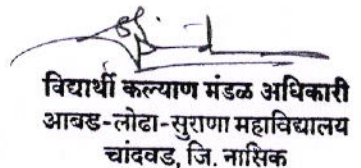 विद्यार्थी कल्याण मंडळ अधिकारी
आबड-लोढा-सुराणा महाविद्यालय
चांदवड, जि. नाशिक